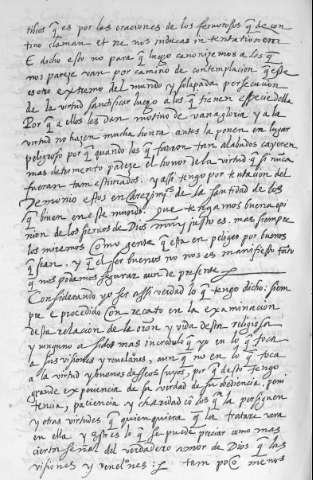 tifica q̄ es por las oraciones de los fervorosos q̄ de con
tino claman et ne nos inducas in tentationem
E dicho esto no para q̄ luego canonizemos a los q̄
nos parece van por camino de contemplacion q̄ este
es otro extremo del mundo y solapada persecucion
de la virtud santificar luego a los q̄ tienen especie della
Por q̄ a ellos les dan motivo de vanagloria y a la
virtud no hazen mucha honra antes la ponen en lugar
peligroso por q̄ quando los q̄ fueron tan alabados cayeren
mas detrimento padece el honor de la virtud q̄ si nunca
fueran tan estimados. y assi tengo por tentacion del
demonio estos encarezim.os de la santidad de los
q̄ biuen en este mundo. que tengamos buena opi
nion de los siervos de Dios muy justo es. mas siempre
los miremos como gente q̄ esta en peligro por buenos
q̄ sean. y q̄ el ser buenos no nos es manifiesto tanto
q̄ nos podamos segurar aun de presente
Considerando yo ser assi verdad lo q̄ tengo dicho. siem
pre e procedido con recato en la examinacion
desta relacion de la oron y vida desta religiosa
y ninguno a sido mas incredulo q̄ yo en lo q̄ toca
a sus visiones y revelaones, aun q̄ no en lo q̄ toca
a la virtud y buenos deseos suyos, por q̄ desto tengo
grande experiencia de su verdad de su obediencia, peni
tencia, paciencia y charidad con los q̄ la persiguen
y otras virtudes q̄ quien quiera q̄ la tratare vera
en ella y esto es lo q̄ se puede preciar como mas
cierta señal del verdadero amor de Dios q̄ las
visiones y revelones: tem poco menos